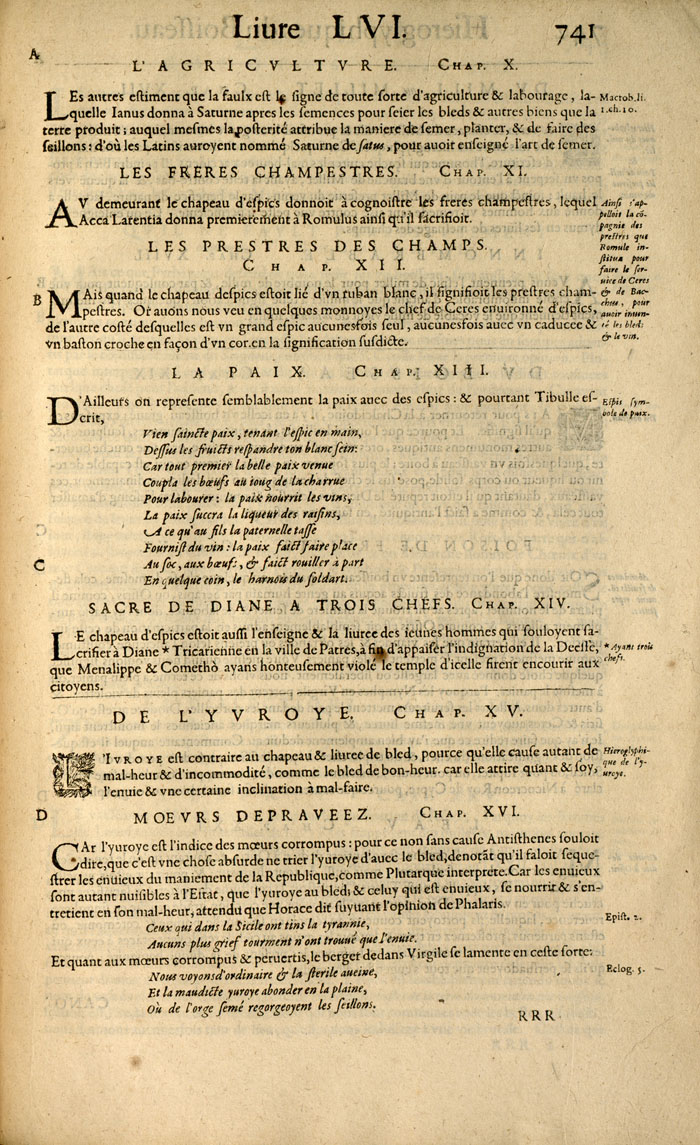 Liure LVI. 741
A
L'AGRICVLTVRE. CHAP. X.
LEs autres estiment que la faulx est le signe de toute sorte d'agriculture & labourage, la-
quelle Ianus donna à Saturne apres les semences pour seier les bleds & autres biens que la
terre produit; auquel mesmes la posterité attribue la maniere de semer, planter, & de faire des
seillons: d'où les Latins auroyent nommé Saturne de satus, pour auoir enseigné l'art de semer.
Macrob. li.
1. ch. 10.
LES FRERES CHAMPESTRES. CHAP. XI.
AV demeurant le chapeau d'espics donnoit à cognoistre les freres champestres, lequel
Acca Larentia donna premierement à Romulus ainsi qu'il sacrifioit.
Ainsi s'ap-
pelloit la cõ-
pagnie des
prestres que
Romule in-
stitua pour
faire le ser-
uice de Ceres
& de Bac-
chus, pour
auoir inuen-
té les bleds
& le vin.
LES PRESTRES DES CHAMPS.
CHAP. XII.
B
MAis quand le chapeau despics estoit lié d'vn ruban blanc, il signifioit les prestres cham-
pestres. Or auons nous veu en quelques monnoyes le chef de Ceres enuironné d'espics,
de l'autre costé desquelles est vn grand espic aucunesfois seul, aucunesfois auec vn caducee &
vn baston croche en façon d'vn cor. en la signification susdicte.
LA PAIX. CHAP. XIII.
D'Ailleurs on represente semblablement la paix auec des espics: & pourtant Tibulle es-
crit,
Espis sym-
bole de paix.
Vien saincte paix, tenant l'espic en main,
Dessus les fruicts respandre ton blanc sein:
Car tout premier la belle paix venue
Coupla les bœufs au ioug de la charrue
Pour labourer: la paix nourrit les vins,
La paix succra la liqueur des raisins,
A ce qu'au fils la paternelle tasse
Fournist du vin: la paix faict faire place
C
Au soc, aux bœufs, & faict rouiller à part
En quelque coin, le harnois du soldart.
SACRE DE DIANE A TROIS CHEFS. CHAP. XIV.
LE chapeau d'espics estoit aussi l'enseigne & la liuree des ieunes hommes qui souloyent sa-
crifier à Diane * Tricarienne en la ville de Patres, à fin d'appaiser l'indignation de la Deesse,
que Menalippe & Comethò ayans honteusement violé le temple d'icelle firent encourir aux
citoyens.
* Ayant trois
chefs.
DE L'YVROYE. CHAP. XV.
L'IVROYE est contraire au chapeau & liuree de bled, pource qu'elle cause autant de
mal-heur & d'incommodité, comme le bled de bon-heur. car elle attire quant & soy,
l'enuie & vne certaine inclination à mal-faire.
Hieroglyphi-
que de l'y-
uroye.
D
MOEVRS DEPRAVEEZ. CHAP. XVI.
CAr l'yuroye est l'indice des mœurs corrompus: pour ce non sans cause Antisthenes souloit
dire, que c'est vne chose absurde ne trier l'yuroye d'auec le bled, denotãt qu'il faloit seque-
strer les enuieux du maniement de la Republique, comme Plutarque interprete. Car les enuieux
sont autant nuisibles à l'Estat, que l'yuroye au bled: & celuy qui est enuieux, se nourrit & s'en-
tretient en son mal-heur, attendu que Horace dit suyuant l'opinion de Phalaris.
Epist. 2.
Ceux qui dans la Sicile ont tins la tyrannie,
Aucuns plus grief tourment n'ont trouué que l'enuie.
Et quant aux mœurs corrompus & peruertis, le berger dedans Virgile se lamente en ceste sorte:
Eclog. 5.
Nous voyons d'ordinaire & la sterile aueine,
Et la maudicte yuroye abonder en la plaine,
Où de l'orge semé regorgeoyent les seillons.
RRR